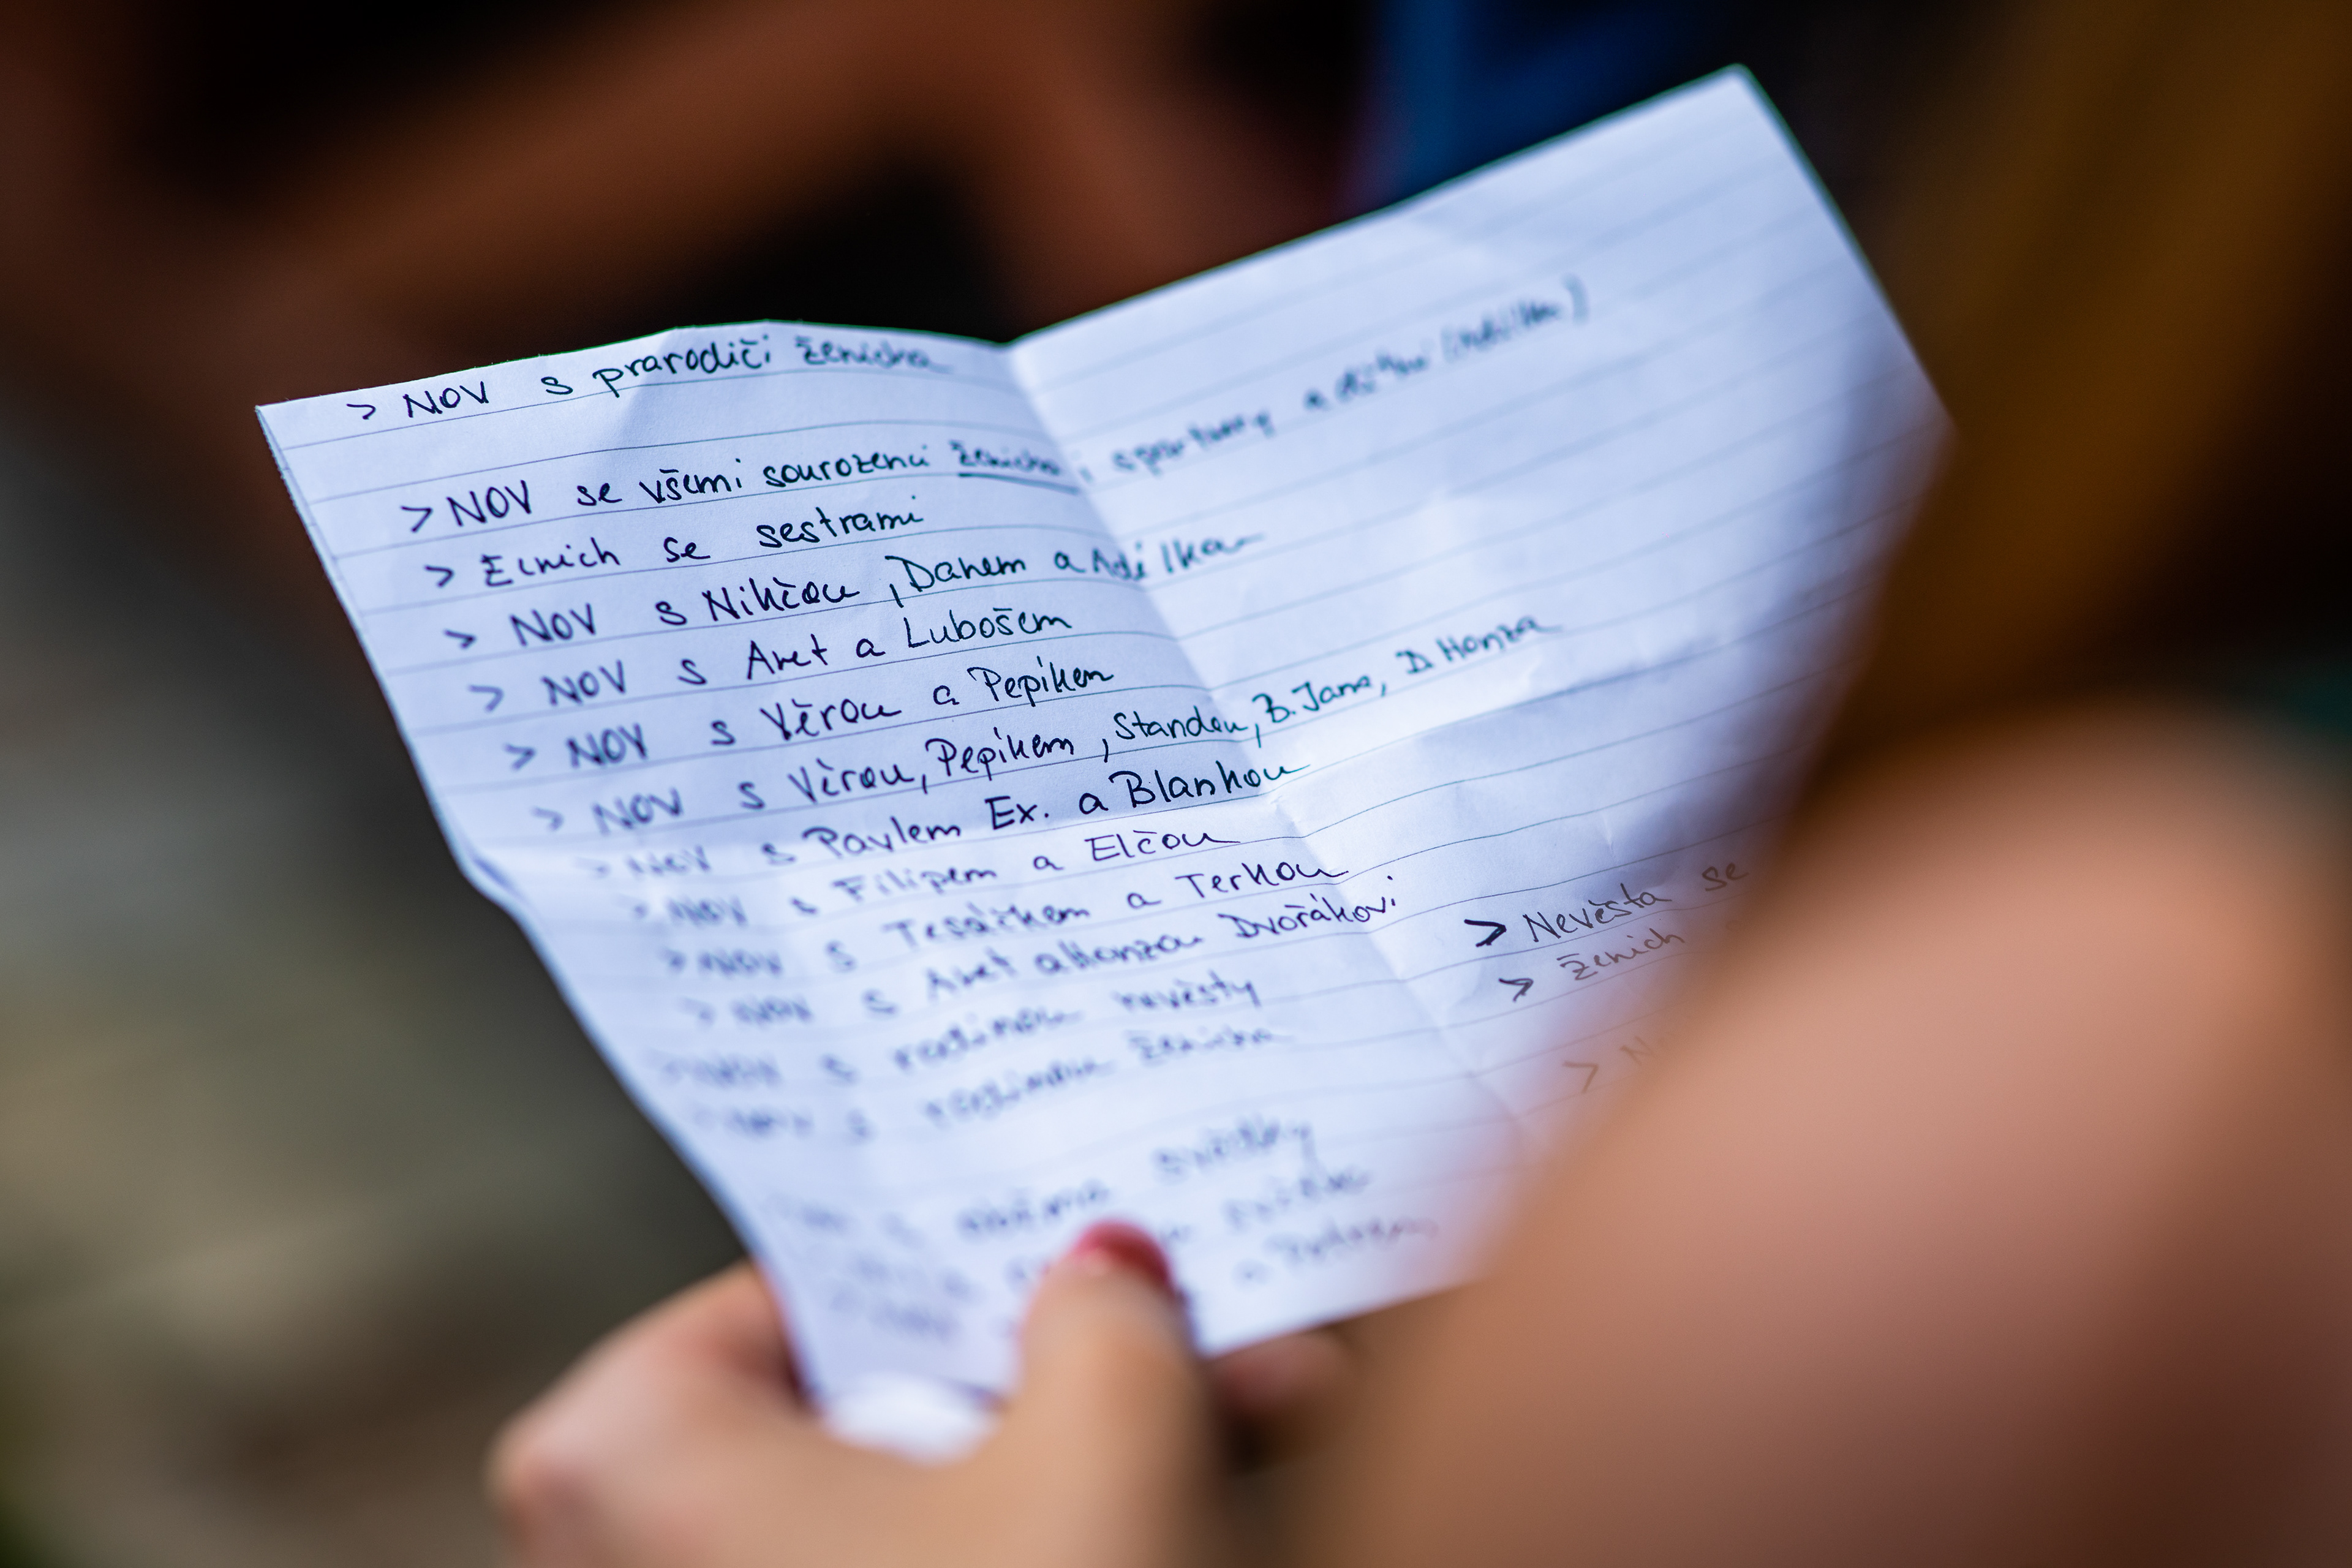 > NOV s prarodiči ženicha
> NOV se všemi sourozenci ženicha i s partnery a dětmi
> Ženich se sestrami
> NOV s Nikčou, Danem a Adélkou
> NOV s Anet a Lubošem
> NOV s Věrou a Pepíkem
> NOV s Věrou, Pepíkem, Standou, B. Jana, D. Honza
> NOV s Pavlem Ex. a Blankou
> NOV s Filipem a Elčou
> NOV s Tesáčkem a Terkou
> NOV s Anet a Honzou Dvořákovi
> NOV s rodinou nevěsty
> NOV s rodinou ženicha
svědky
a
> Nevěsta se
> Ženich
> N